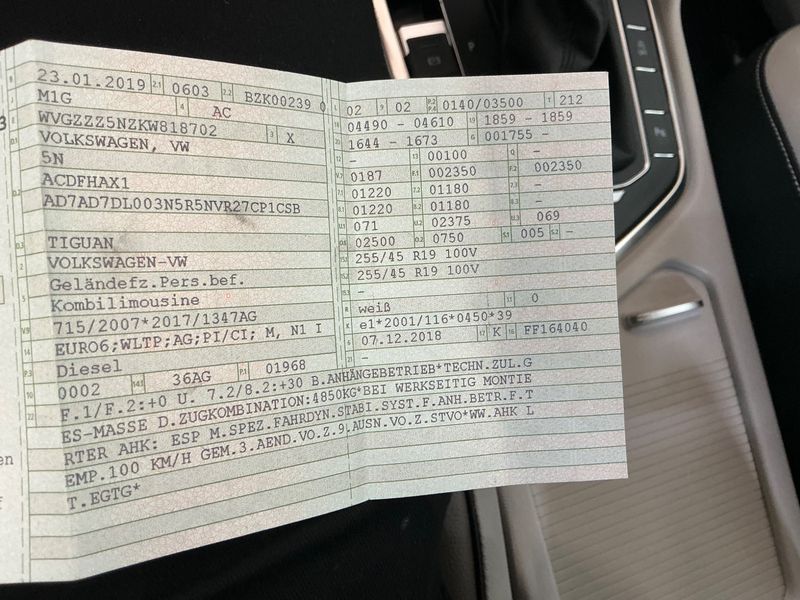 23.01.2019 2.1 0603 2.2 BZK00239 0
M1G 4 AC
WVGZZZ5NZKW818702 3 X
VOLKSWAGEN, VW
5N
ACDFHAX1
AD7AD7DL003N5R5NVR27CP1CSB
D.3 TIGUAN
2 VOLKSWAGEN-VW
5 Geländefz.Pers.bef.
Kombilimousine
V.9 715/2007*2017/1347AG
14 EURO6;WLTP;AG;PI/CI; M, N1 I
P.3 Diesel P.1 01968
10 0002 14.1 36AG
02 9 02 P.2 P.4 0140/03500 T 212
18 04490 - 04610 19 1859 - 1859
20 1644 - 1673 G 001755 -
12 - 13 00100 Q -
V.7 0187 F.1 002350 F.2 002350
7.1 01220 7.2 01180 7.3 -
8.1 01220 8.2 01180 8.3 -
U.1 071 U.2 02375 U.3 069
O.1 02500 O.2 0750 S.1 005 S.2 -
15.1 255/45 R19 100V
15.2 255/45 R19 100V
15.3 -
R weiß 11 0
K e1*2001/116*0450*39
6 07.12.2018 17 K 16 FF164040
21 -
22 F.1/F.2:+0 U. 7.2/8.2:+30 B.ANHÄNGEBETRIEB*TECHN.ZUL.G
ES-MASSE D.ZUGKOMBINATION:4850KG*BEI WERKSEITIG MONTIE
RTER AHK: ESP M.SPEZ.FAHRDYN.STABI.SYST.F.ANH.BETR.F.T
EMP.100 KM/H GEM.3.AEND.VO.Z.9.AUSN.VO.Z.STVO*WW.AHK L
T.EGTG*